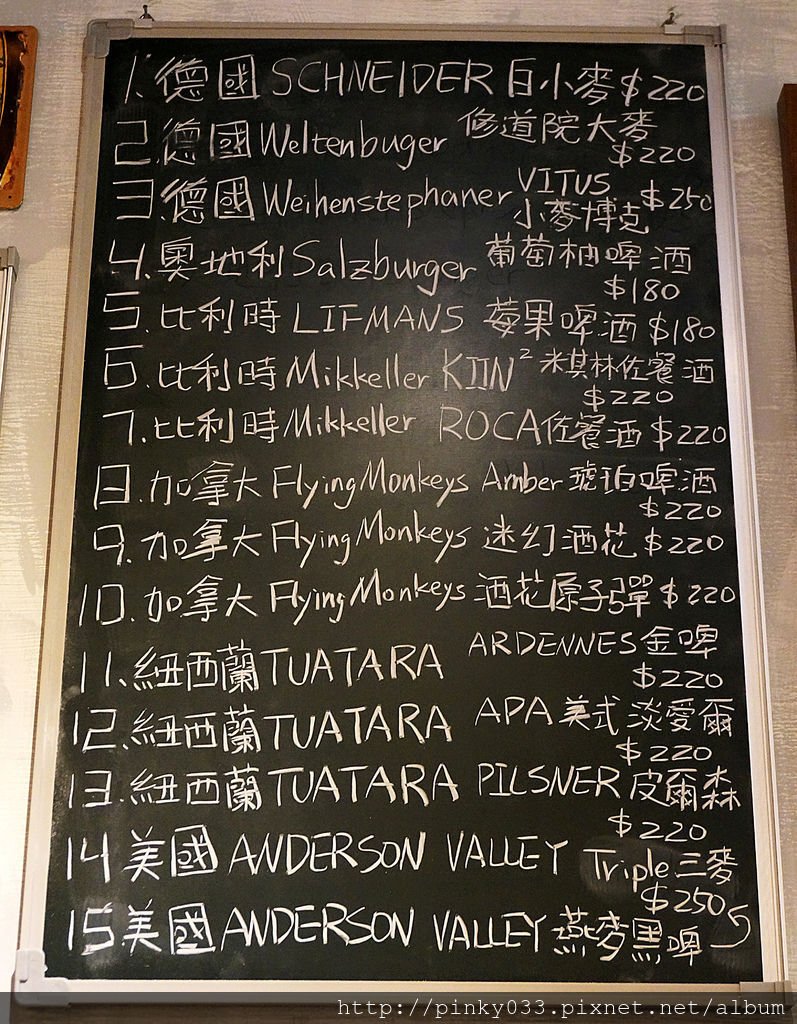 1. 德國 SCHNEIDER 白小麥 $220
2. 德國 Weltenbuger 修道院大麥
$220
3. 德國 Weihenstephaner VITUS
小麥博克 $250
4. 奧地利 Salzburger 葡萄柚啤酒
$180
5. 比利時 LIFMANS 莓果啤酒 $180
6. 比利時 Mikkeller KIIN² 米其林佐餐酒
$220
7. 比利時 Mikkeller ROCA佐餐酒 $220
8. 加拿大 Flying Monkeys Amber 琥珀啤酒
$220
9. 加拿大 Flying Monkeys 迷幻酒花 $220
10. 加拿大 Flying Monkeys 酒花原子彈 $220
11. 紐西蘭 TUATARA ARDENNES金啤
$220
12. 紐西蘭 TUATARA APA 美式淡愛爾
$220
13. 紐西蘭 TUATARA PILSNER 皮爾森
$220
14 美國 ANDERSON VALLEY Triple三麥
$250
15 美國 ANDERSON VALLEY 燕麥黑啤
http://pinky033.pixnet.net/album